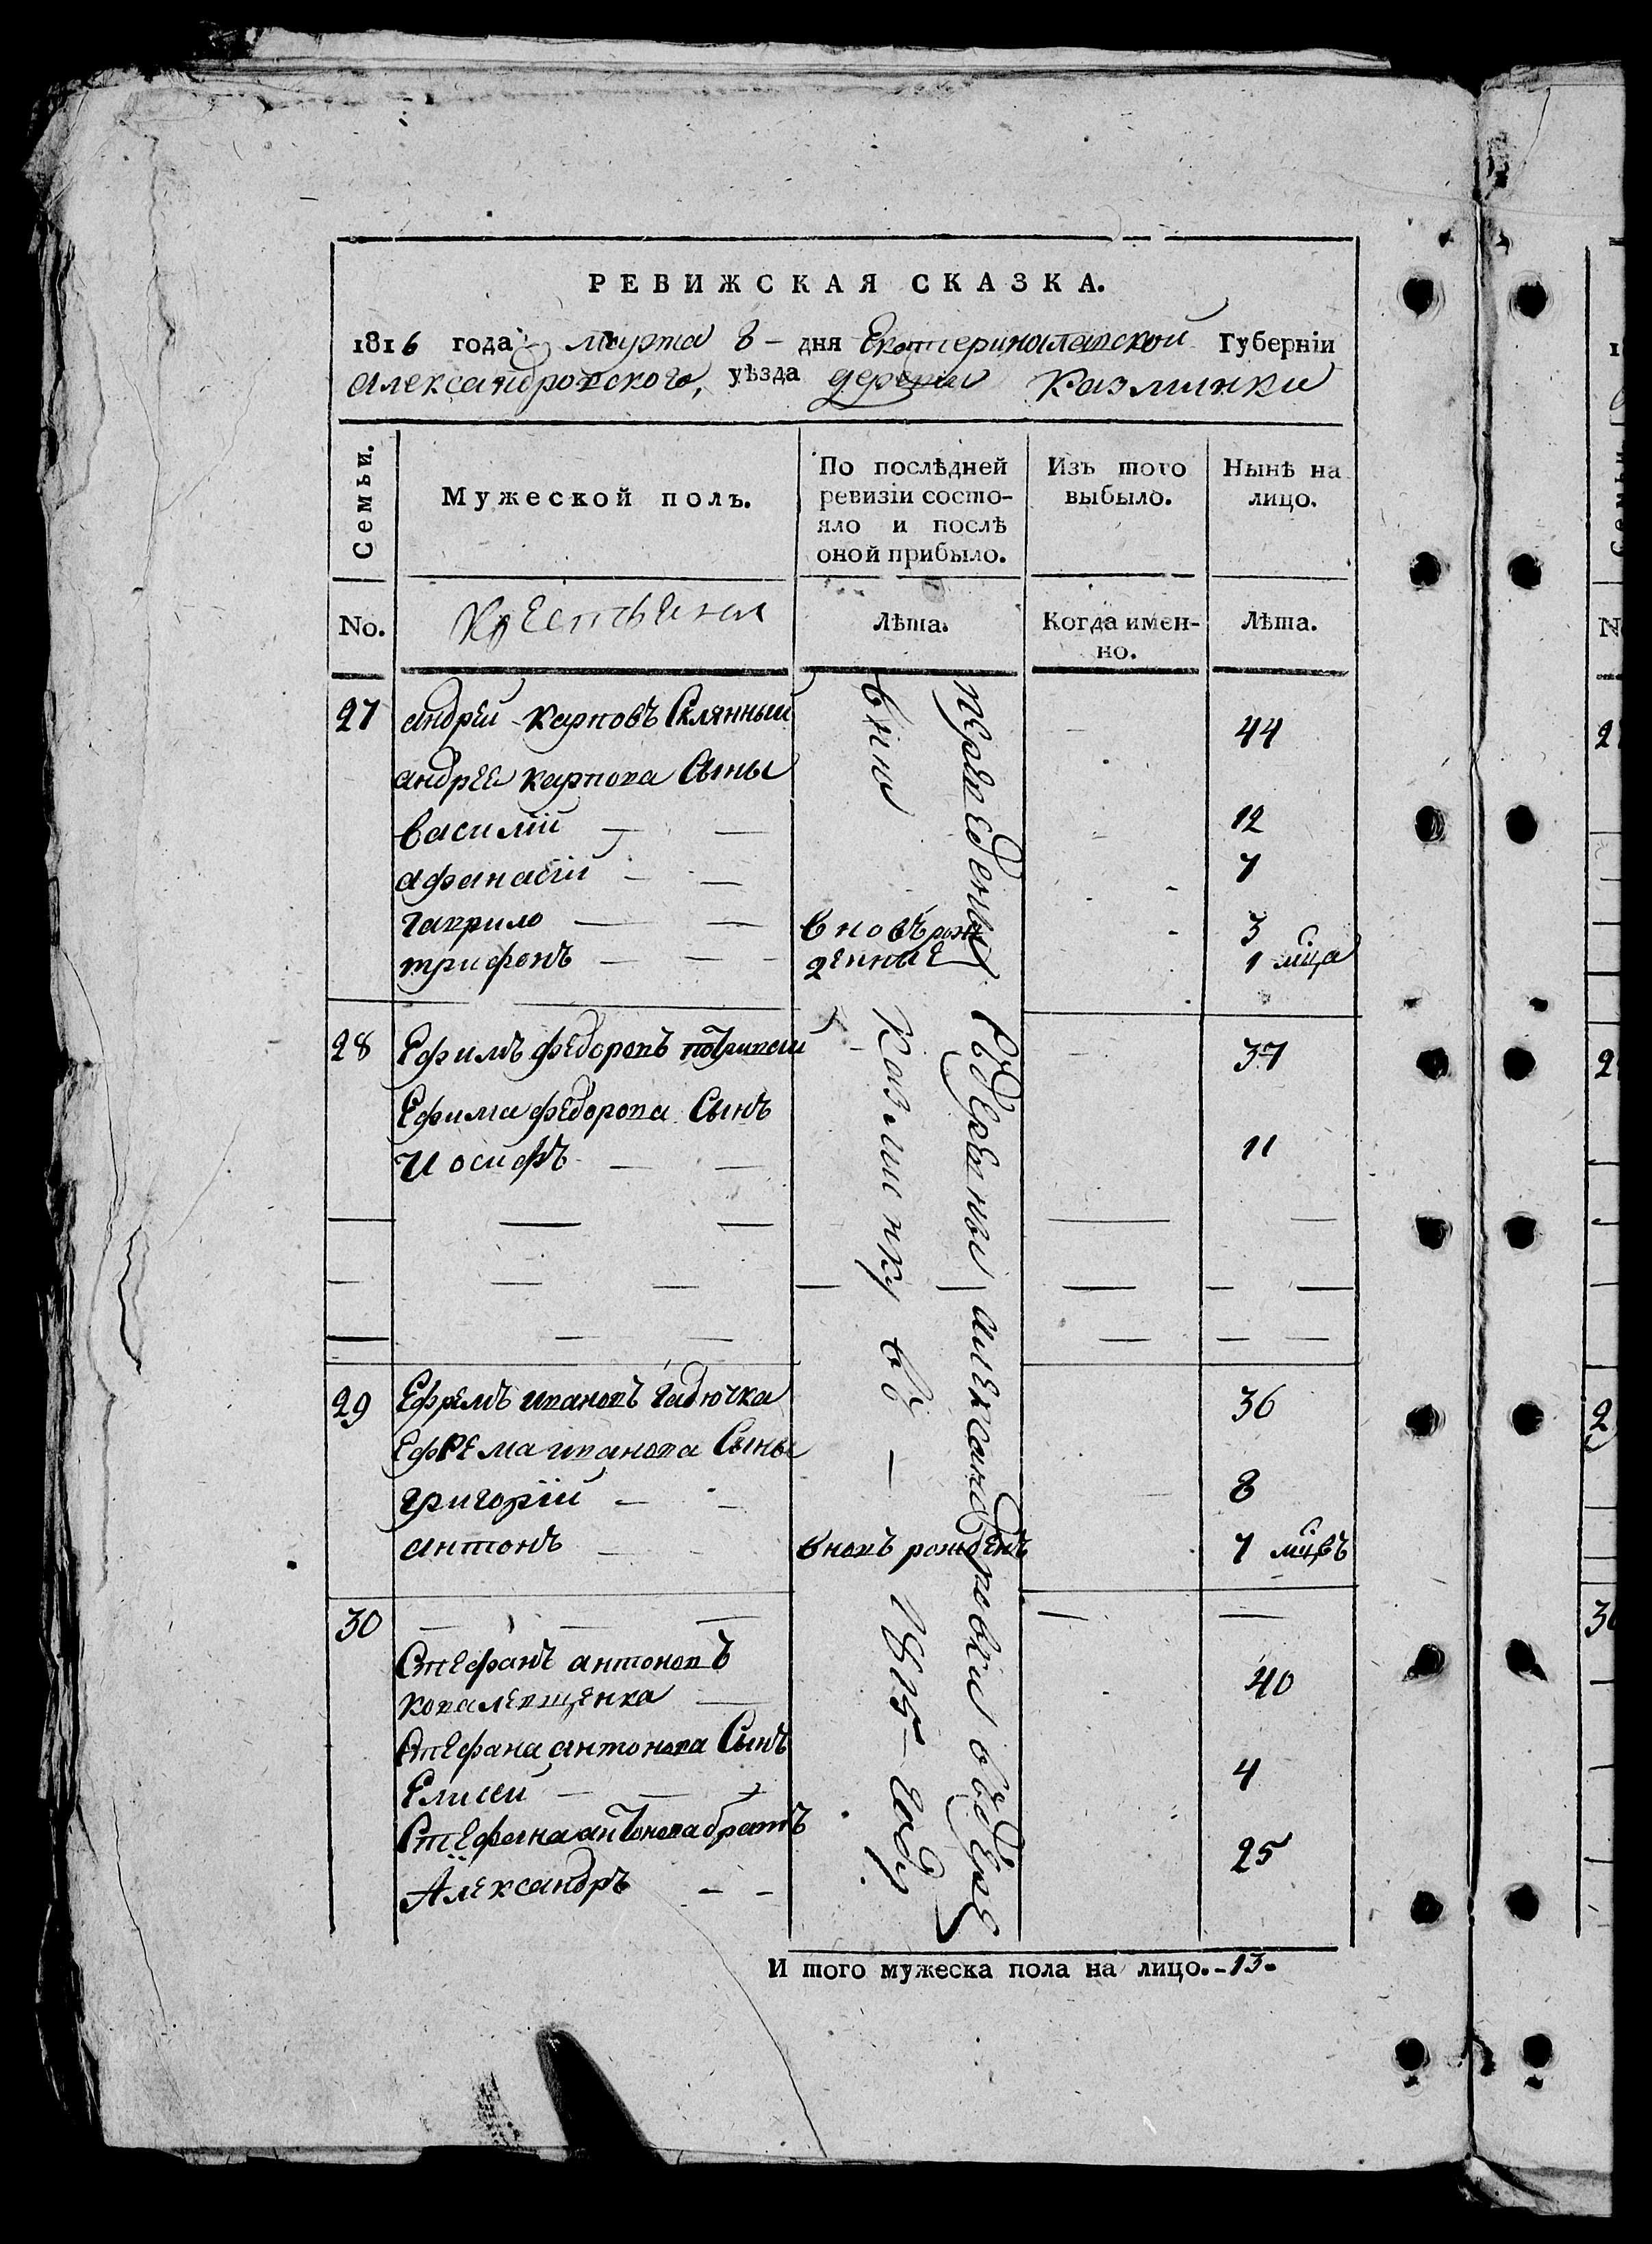 РЕВИЖСКАЯ СКАЗКА.
1816 года марта 8 - дня Екатеринославской Губерніи
Александровского, уѣзда деревни Казминки
Семьи.
Мужеской полъ.
По послѣдней ревизіи состо-
яло и послѣ
оной прибыло.
Изъ того
выбыло.
Нынѣ на
лицо.
No.
Крестьяня
Лѣта.
Когда имен-
но.
Лѣта.
27 андрей Карповъ Склянный 44
андрея карпова Сыны
василій 12
афанасій 7
гаврило вновъ рож 3
трифонъ денные 1 мца
28 Ефимъ федоровъ 37
Ефима федорова Сынъ
Иосифъ 11
29 Ефремъ ивановъ гадючка 36
Ефрема иванова Сыны
григорій 8
антонъ вновъ рожденъ 7 мцвъ
30
Стефанъ антоновъ
ковалевщенка 40
Стефана антонова Сынъ
Елисей 4
Стефана антонова братъ
Александръ 25
переведены
Казминку въ 1815 году
И того мужеска пола на лицо. - 13 -